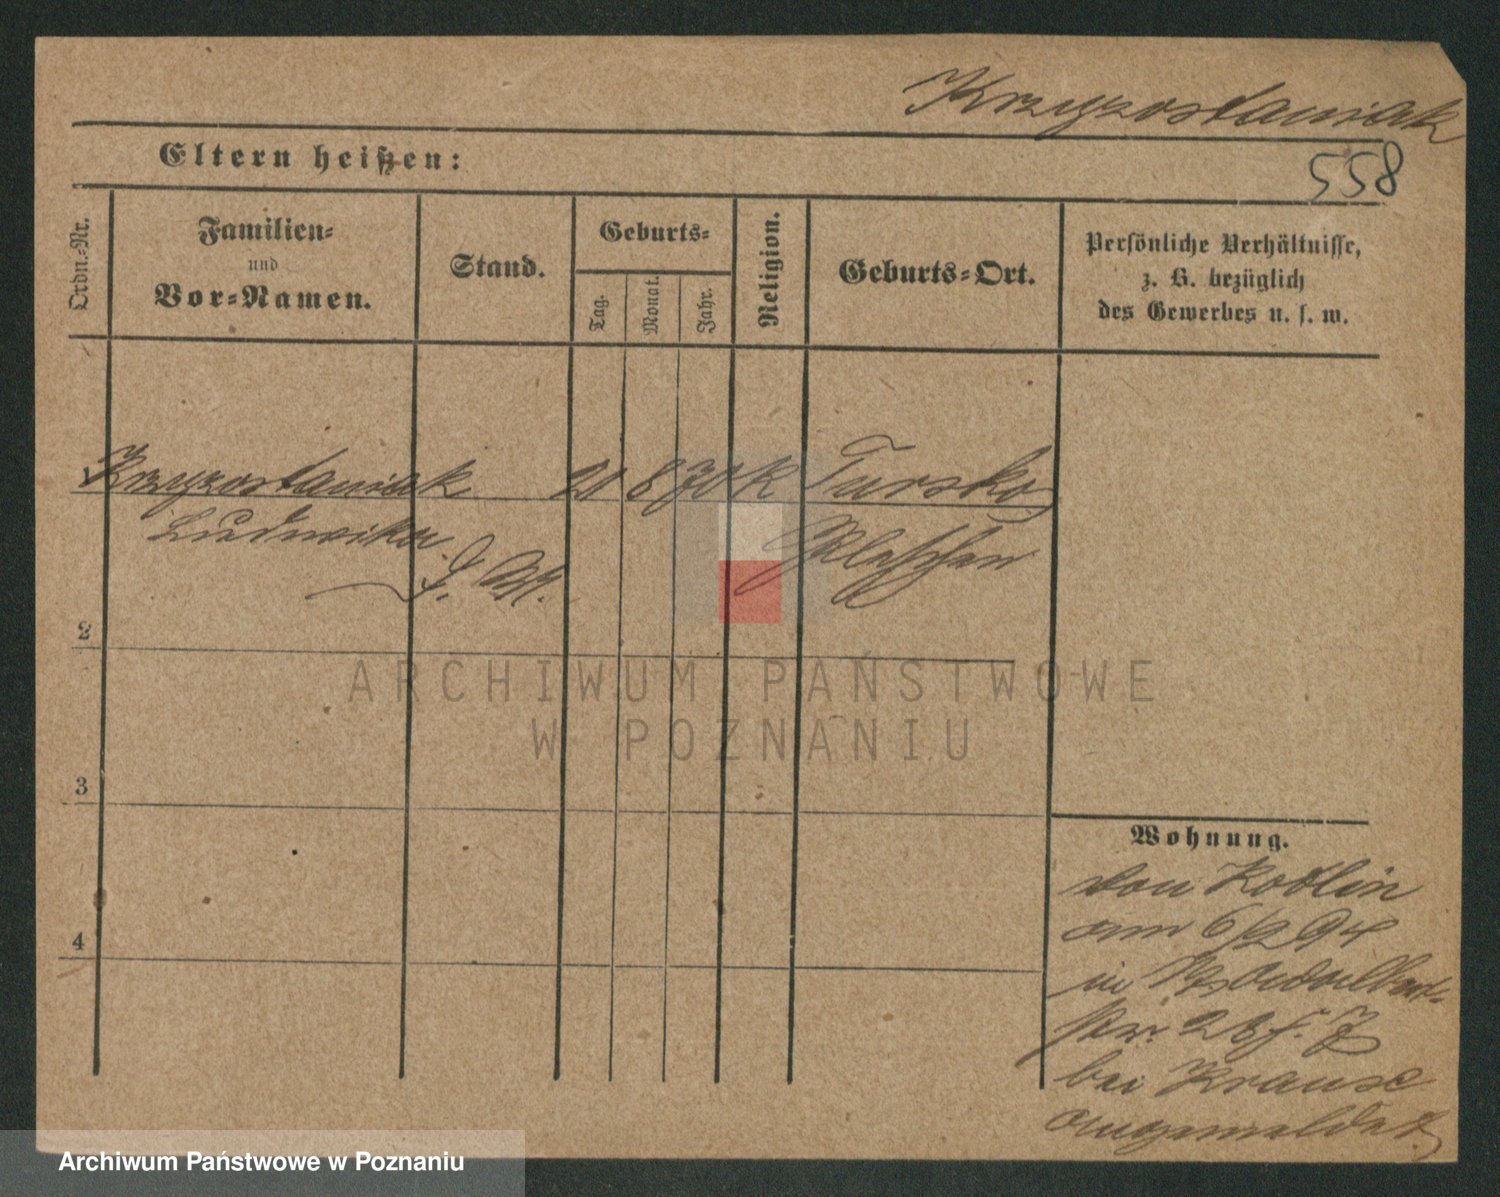 Krzyzostaniak
558
Eltern heißen:
Ordn.-Nr.
Familien-
und
Vor-Namen.
Stand.
Geburts-
Tag.
Monat.
Jahr.
Religion.
Geburts-Ort.
Persönliche Verhältnisse,
z. B. bezüglich
des Gewerbes u. s. w.
Krzyzostaniak 20 8 70 K Tursko
Ludwika D. M. Pleschen
2
3
4
Wohnung.
von Koblin
am 6/2 94
in
Nr. 28 f. Z
bei Krause
angemeldet
ARCHIWUM PAŃSTWOWE
W POZNANIU
Archiwum Państwowe w Poznaniu